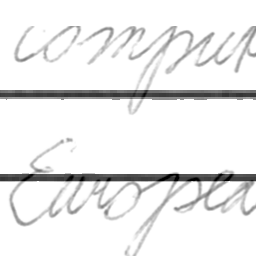 compu
Europea